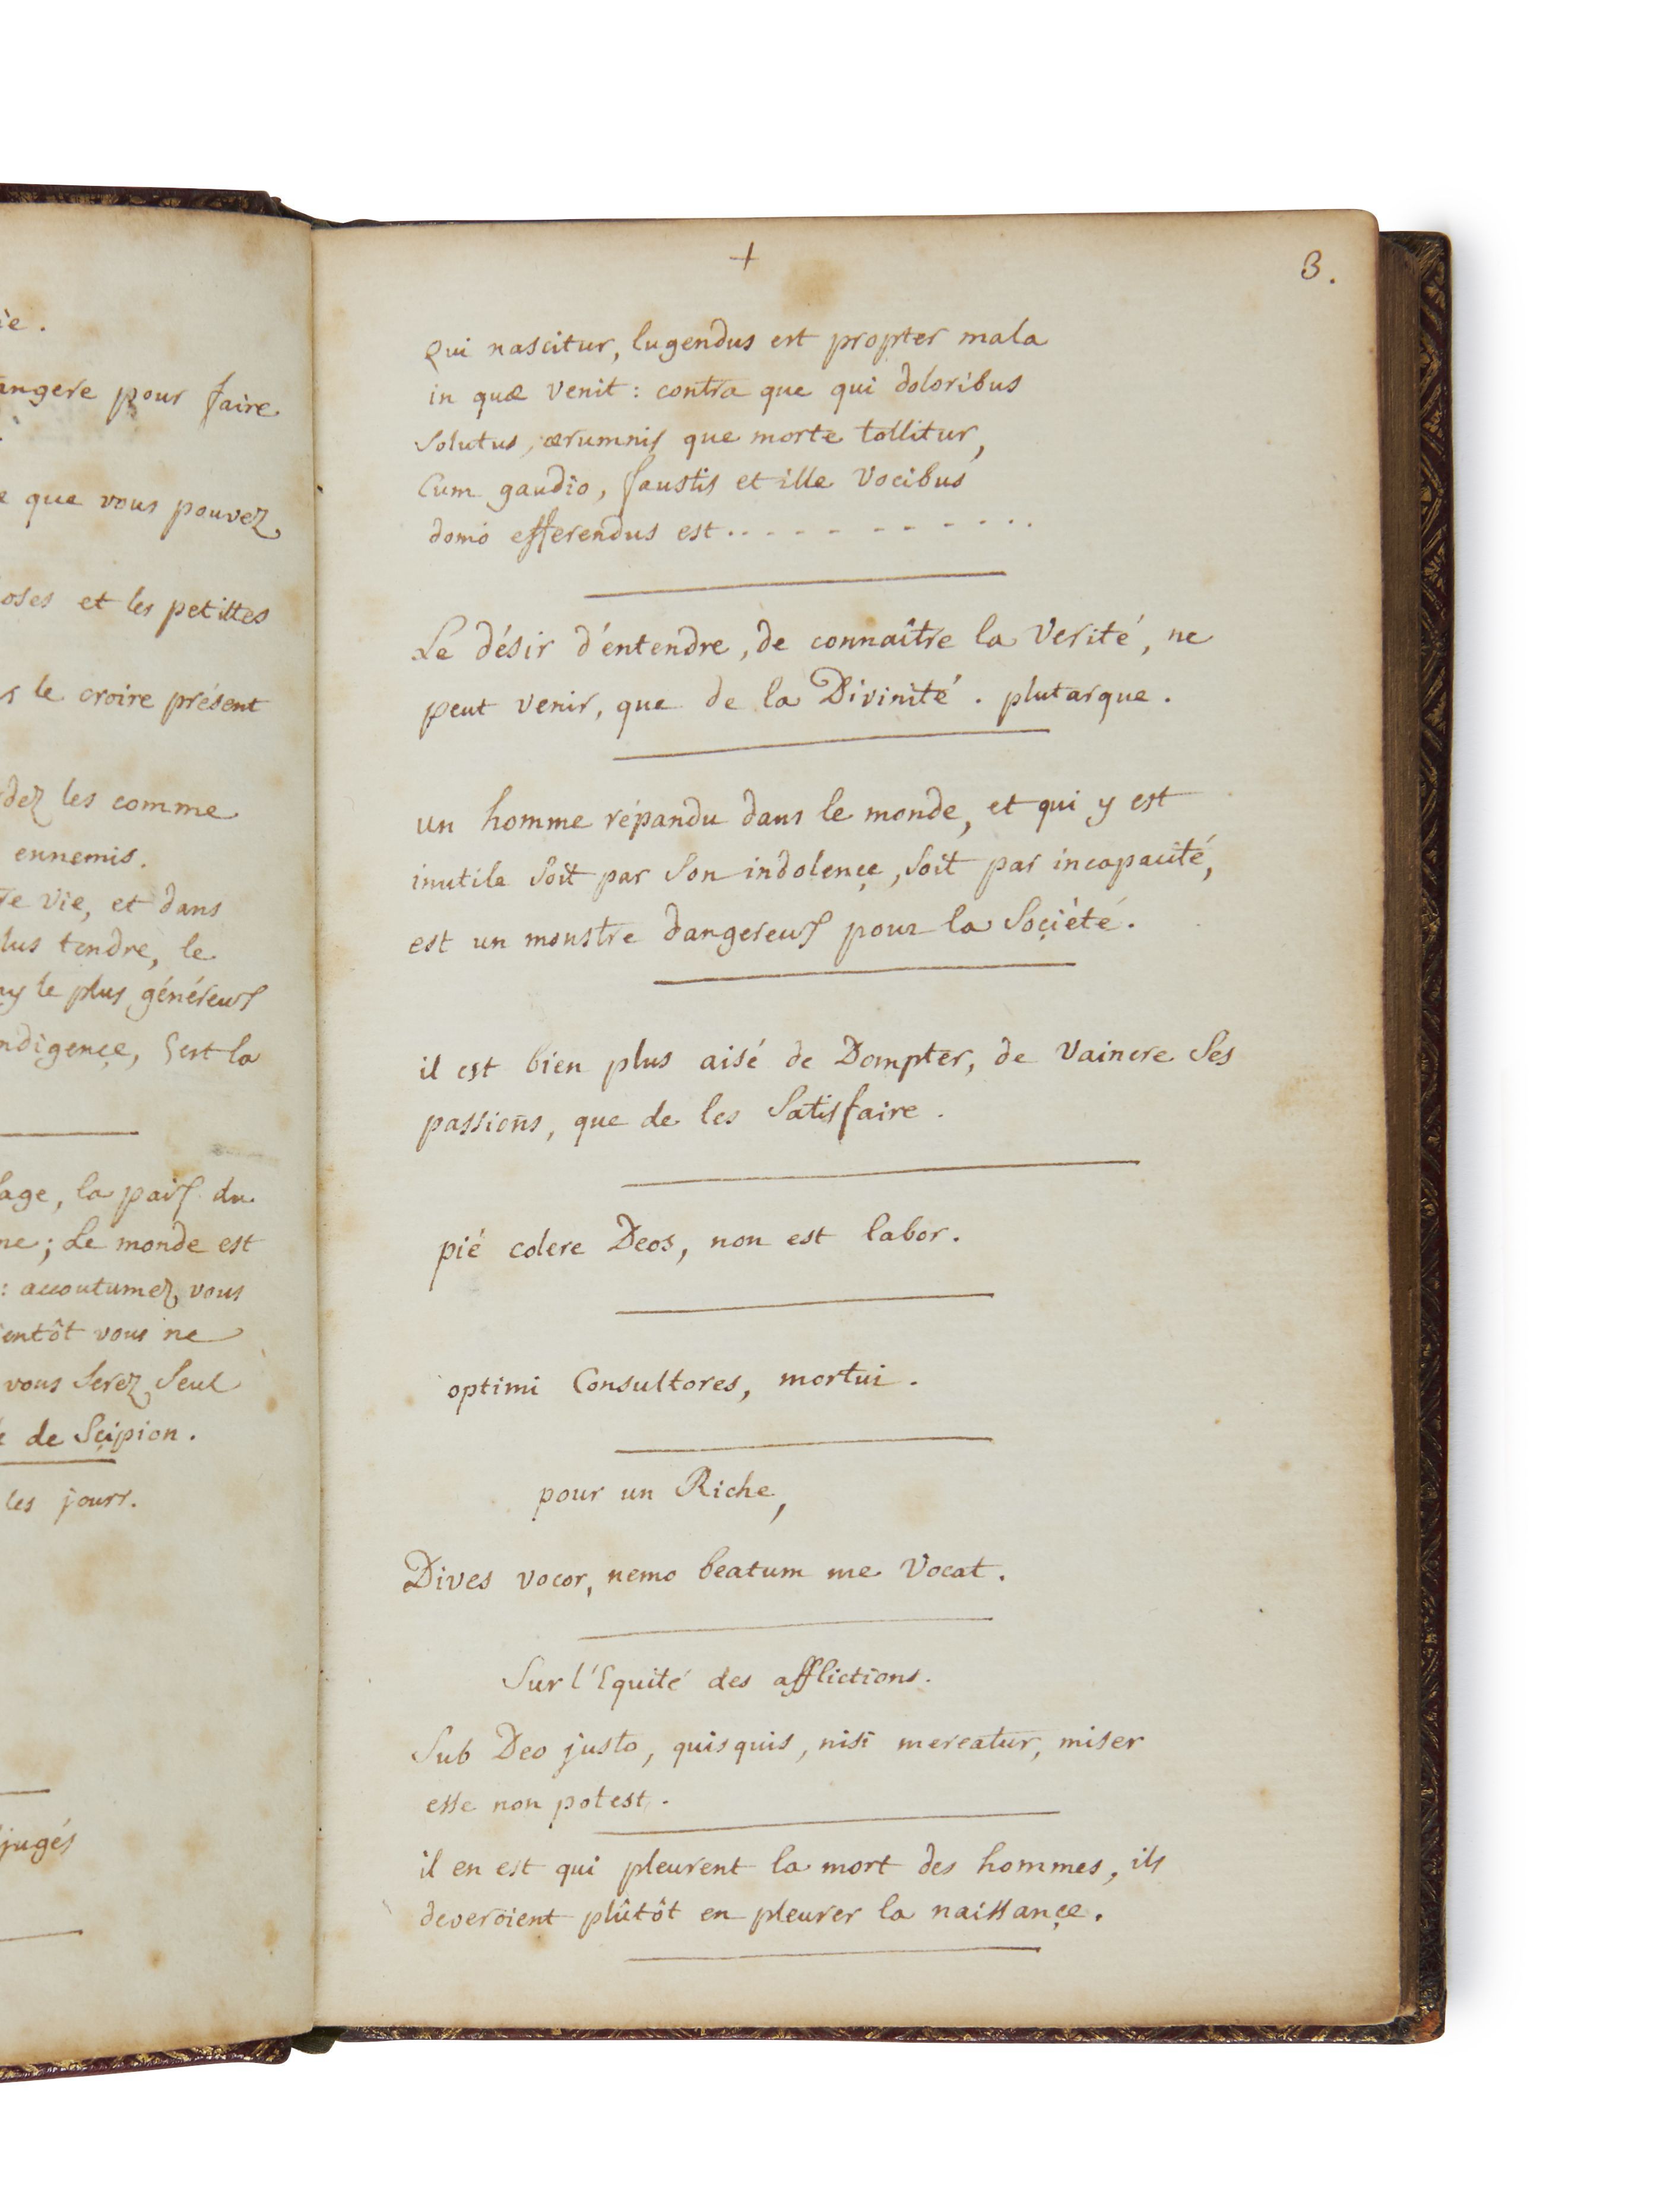 ée.
angere pour faire
e que vous pouvez
oses et les petittes
s le croire présent
dez les comme
ennemis.
re vie, et dans
lus tendre, le
ay le plus généreux
ndigençe, c'est la
sage, la paix du
ne ; Le monde est
: accoutumez vous
ientôt vous ne
vous serez seul
e de Sçipion.
les jours.
jugés
+
3.
Qui nascitur, lugendus est propter mala
in quæ venit : contra que qui doloribus
solutus, ærumnis que morte tollitur,
Cum gaudio, faustis et ille vocibus
domo efferendus est............
Le désir d'éntendre, de connaître la Verité, ne
peut venir, que de la Divinité. plutarque.
un homme répandu dans le monde, et qui y est
inutile soit par son indolençe, soit par incapacité,
est un monstre dangereux pour la Soçiété.
il est bien plus aisé de Dompter, de vaincre ses
passions, que de les satisfaire.
pié colere Deos, non est labor.
optimi Consultores, mortui.
pour un Riche,
Dives vocor, nemo beatum me vocat.
Sur l'Equité des afflictions.
Sub Deo justo, quisquis, nisi mereatur, miser
esse non potest.
il en est qui pleurent la mort des hommes, ils
deveroient plûtôt en pleurer la naissançe.